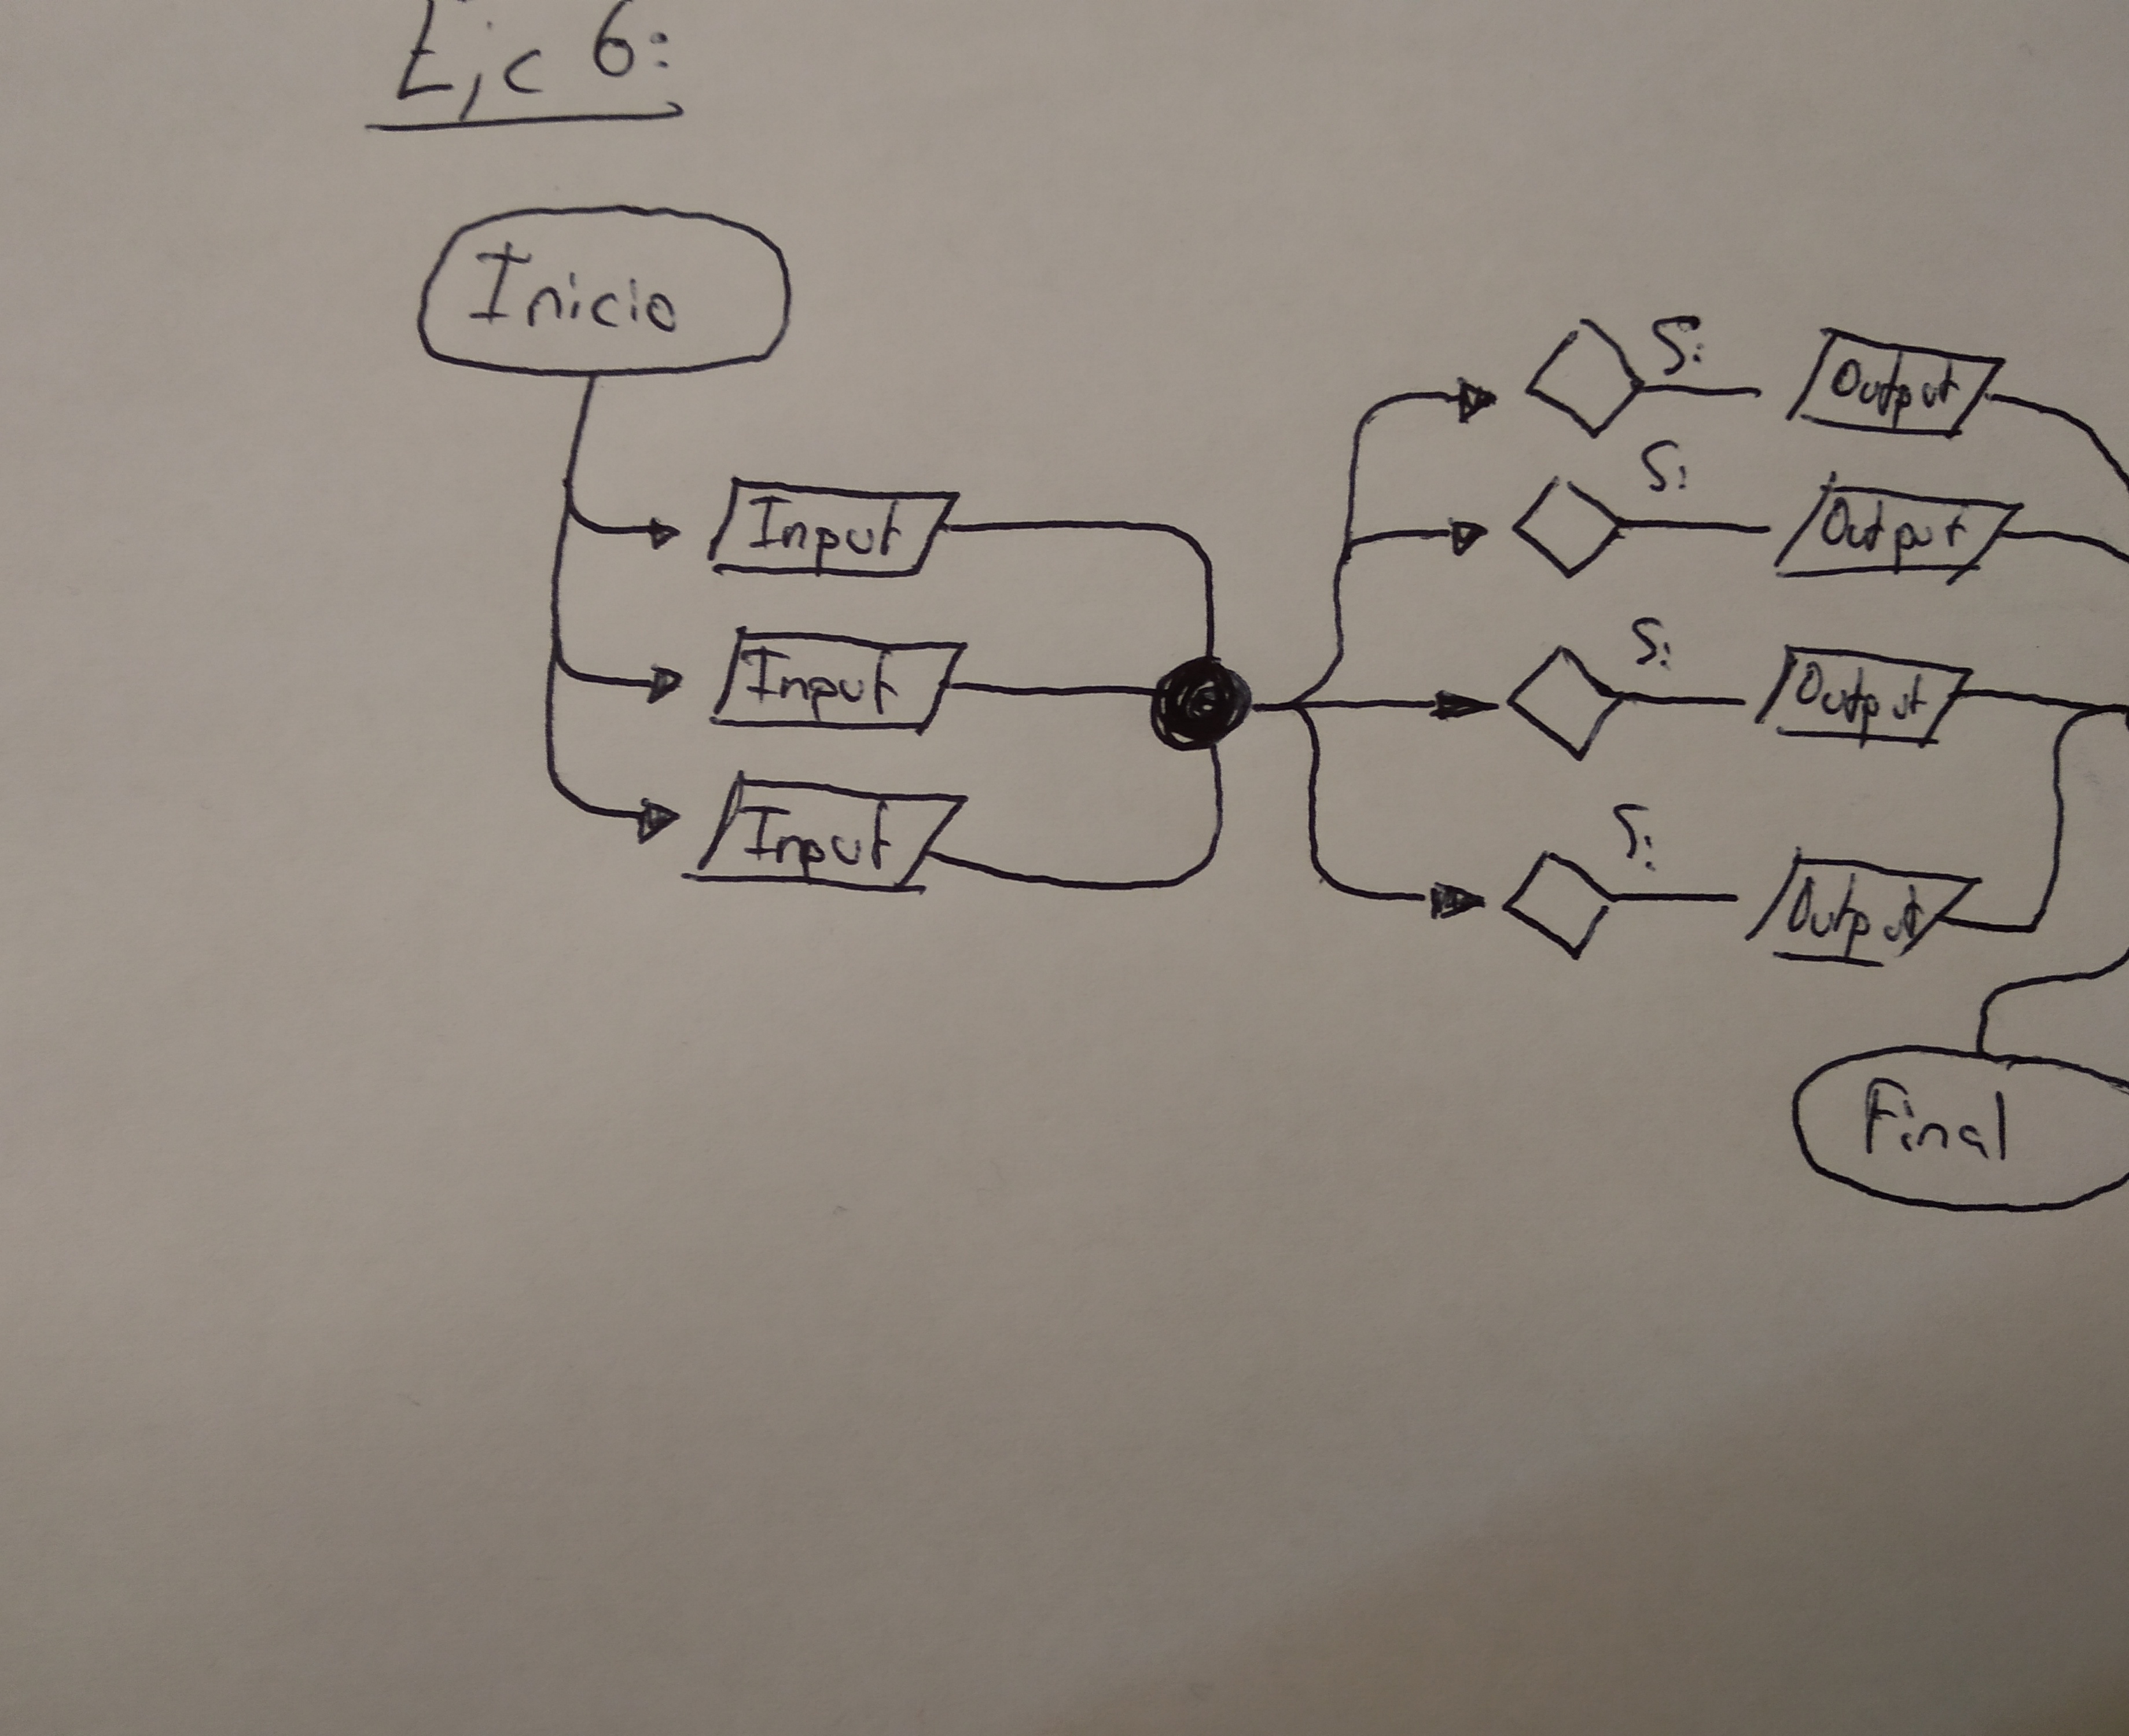 Ejc 6:
Inicio
Input
Input
Input
Si
Output
Si
Output
Si
Output
Si
Output
Final